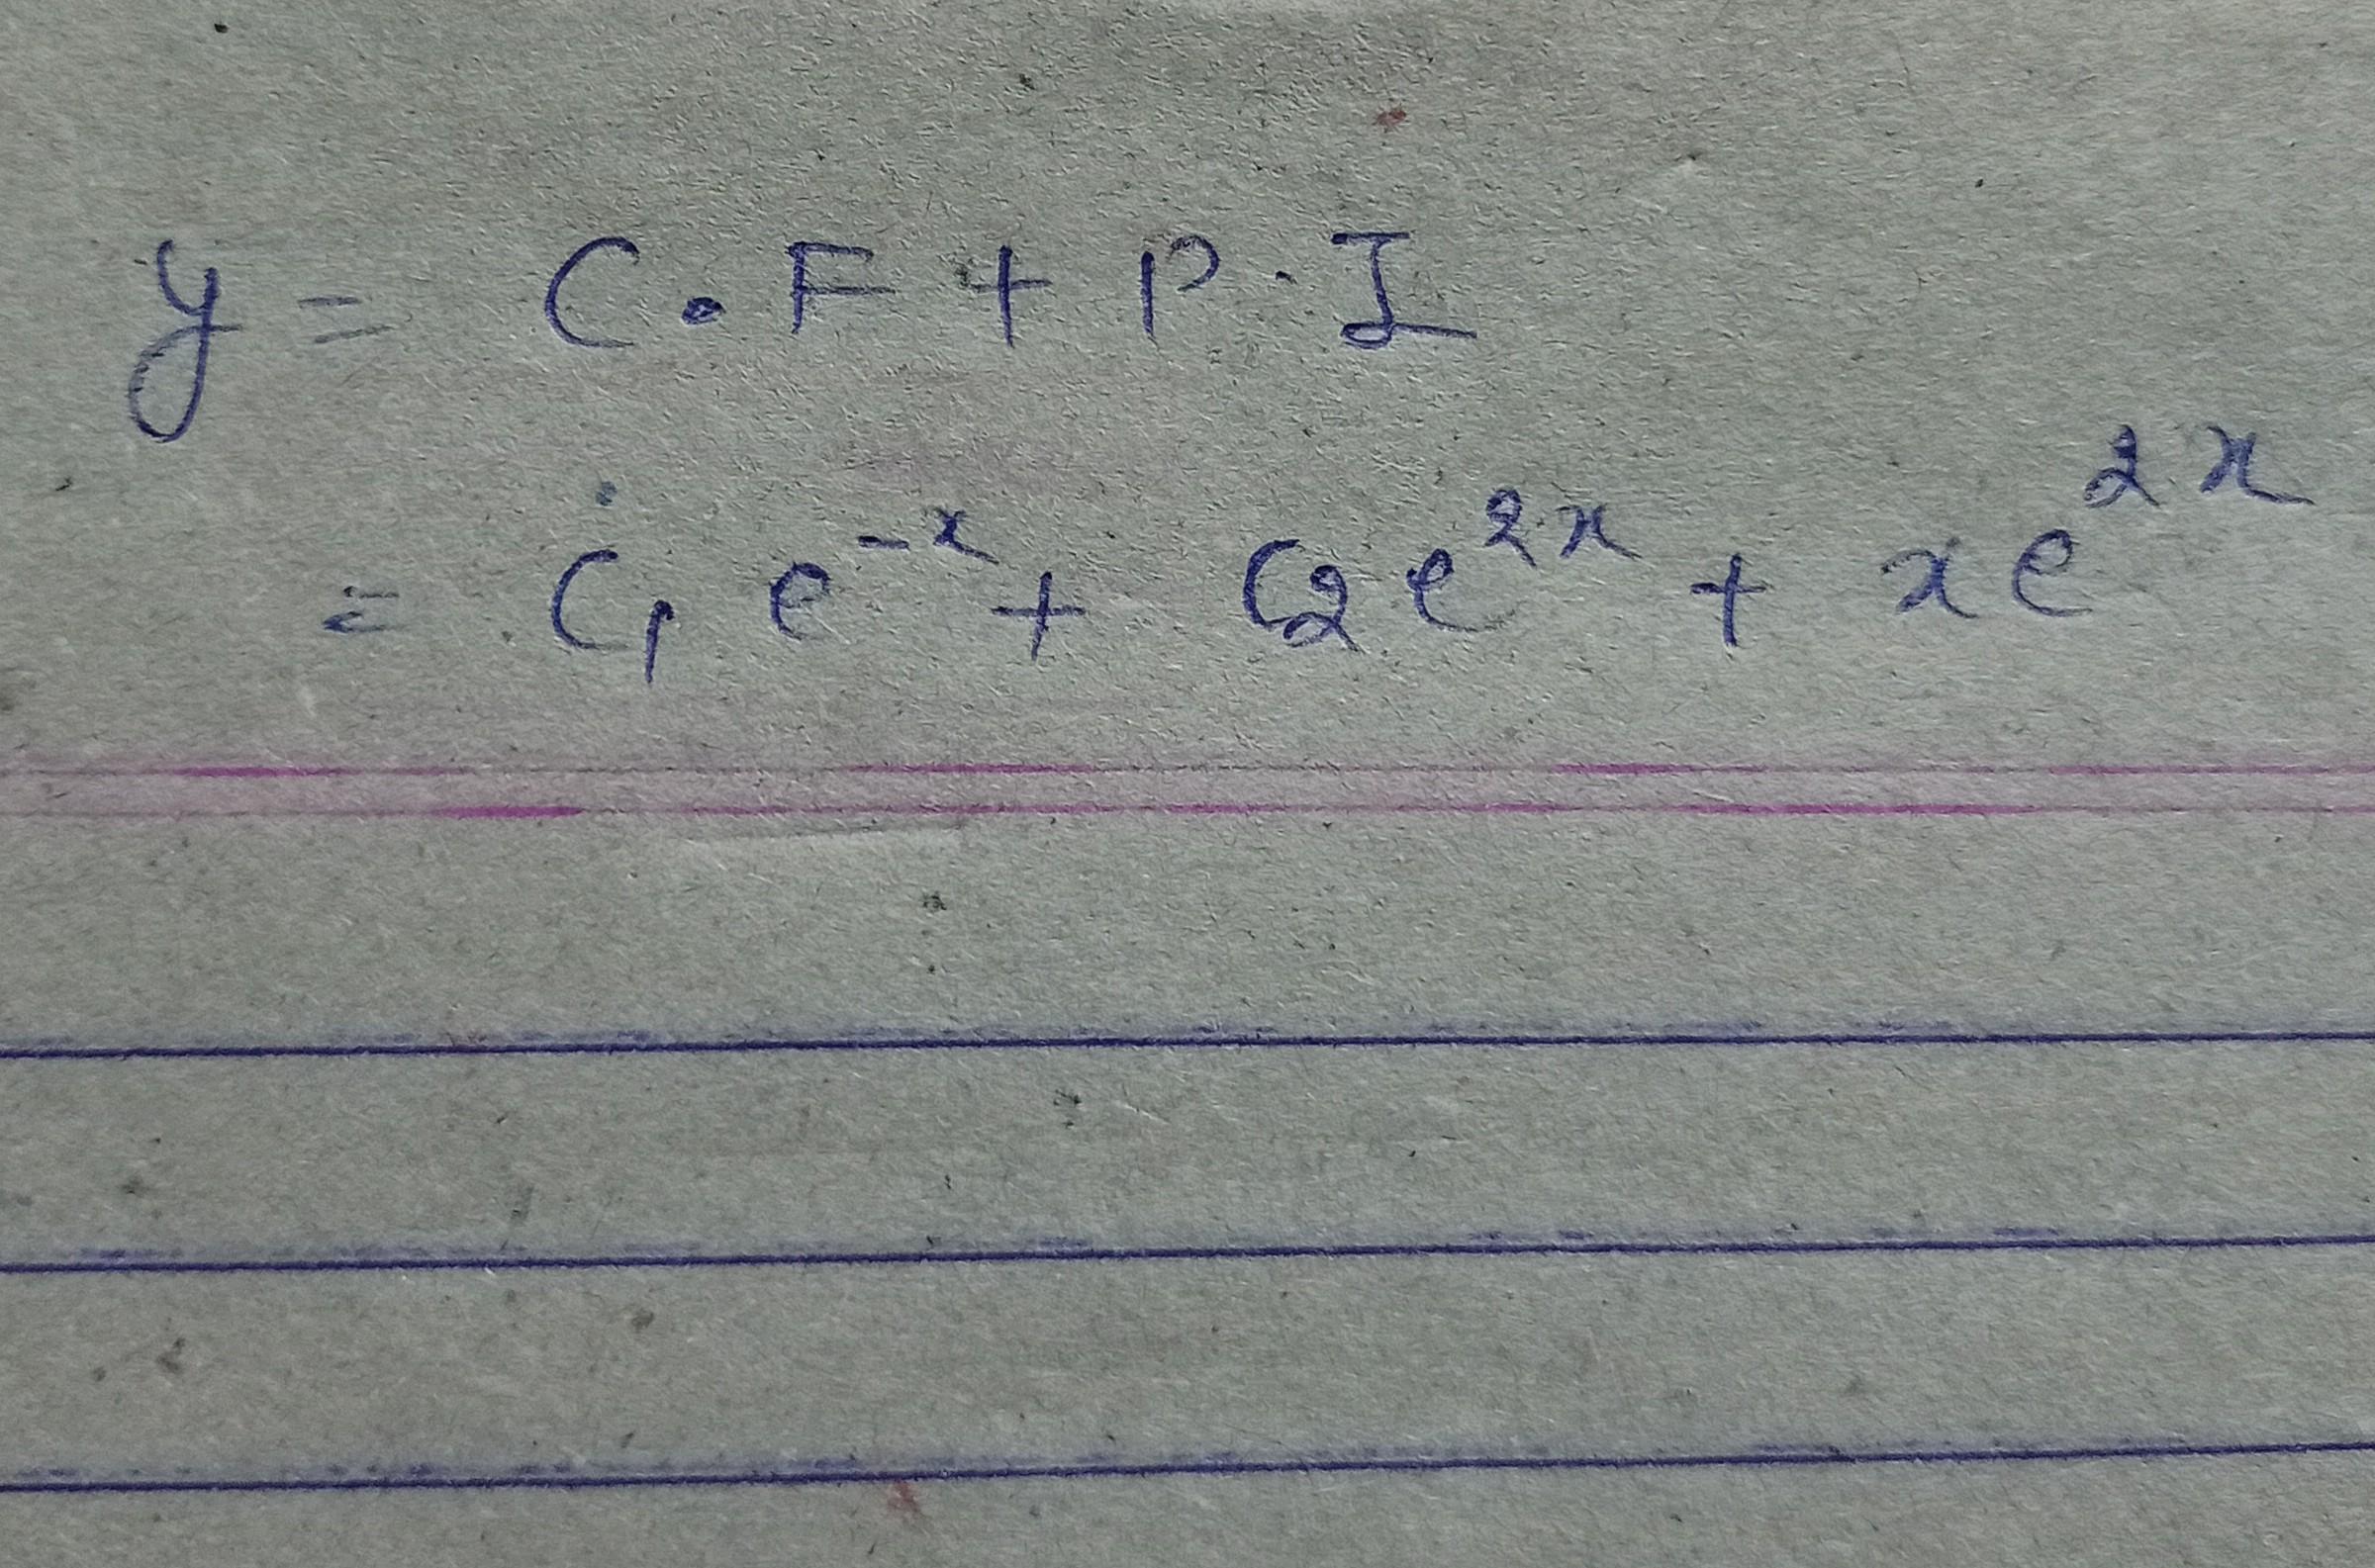 y = C.F + P.I
= C₁ e⁻ˣ + C₂ e²ˣ + x e²ˣ